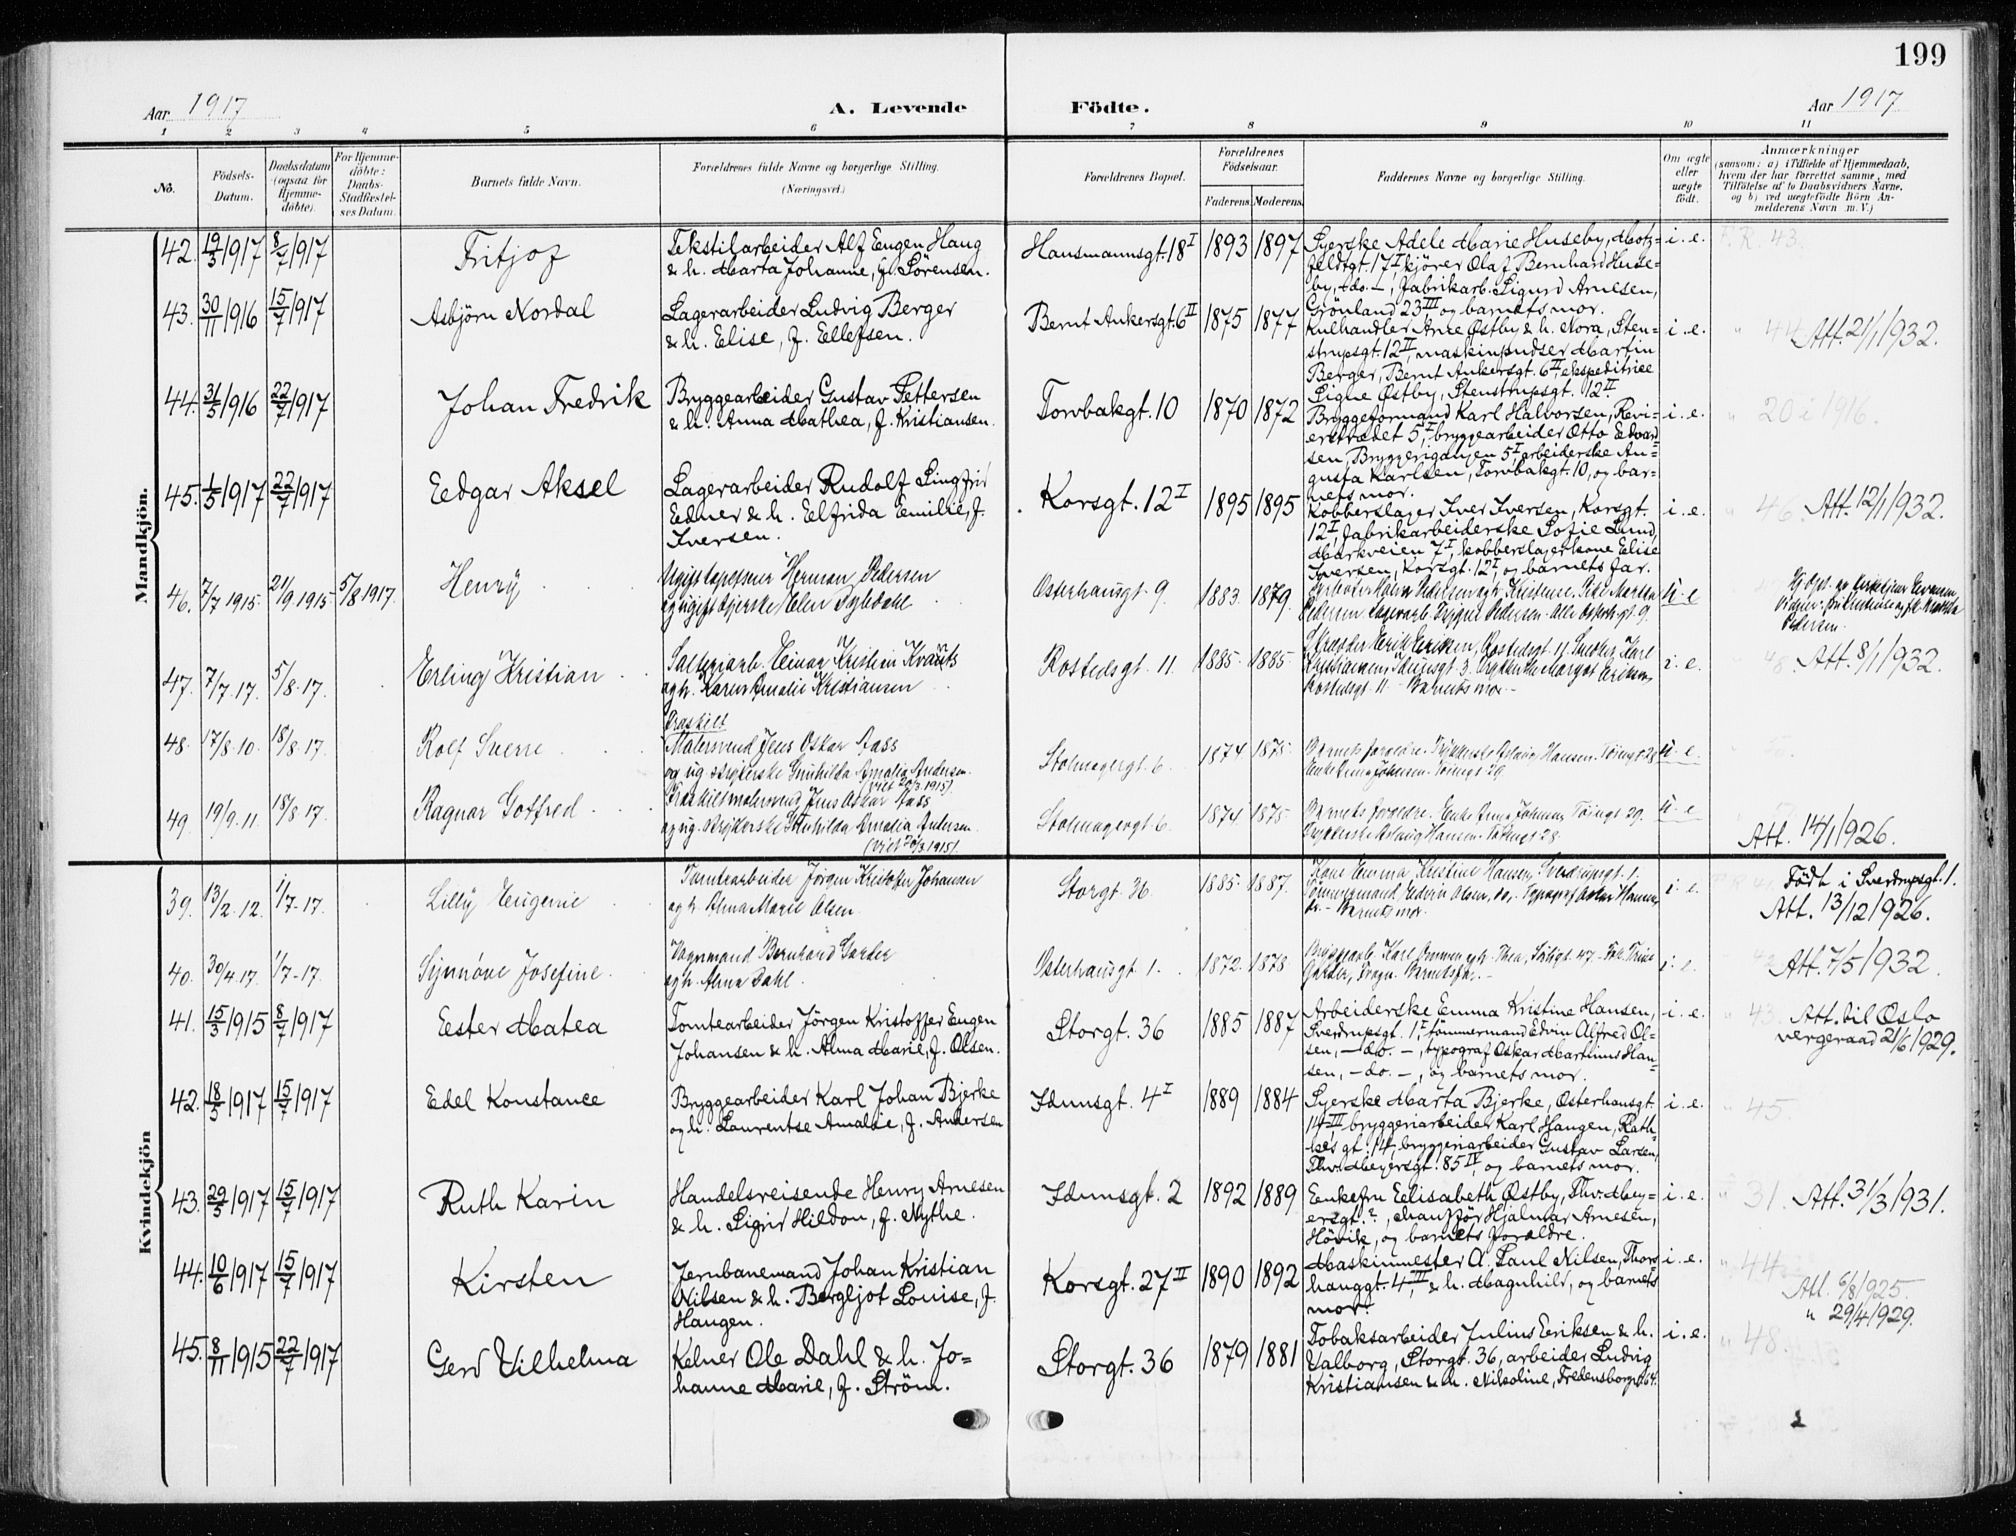 199
Aar 1917
A. Levende
Födte.
Aar 1917
1 2 3 4 5 6 7 8 9 10 11
No.
Födsels-
Datum.
Daabsdatum
(ogsaa for
Hjemme-
döbte).
For Hjemme-
döbte:
Daabs-
Stadfæstel-
ses Datum.
Barnets fulde Navn.
Forældrenes fulde Navne og borgerlige Stilling.
(Næringsvei.)
Forældrenes Bopæl.
Forældrenes
Födselsaar.
Faderens. Moderens.
Faddernes Navne og borgerlige Stilling.
Om ægte
eller
uægte
födt.
Anmærkninger
(saasom: a) i Tilfælde af Hjemmedaab,
hvem der har forrettet samme, med
Tilföielse af to Daabsvidners Navne,
og b) ved uægtefödte Börn An-
melderens Navn m. V.)
Mandkjön.
42. 19/5 1917 8/7 1917
Fritjof
Tekstilarbeider Alf Eugen Haug
& h. Marta Johanne, f. Sörensen.
Hausmannsgt. 18 I
1893 1897
Syerske Adele Marie Huseby, Motz-
feldtgt. 17 I, kjörer Olaf Bernhard Huse-
by, -do.-, fabrikarb. Sigurd Arnesen,
Grönland 23 III og barnets mor.
i. e.
F. R. 43.
43. 30/11 1916 15/7 1917
Asbjörn Nordal
Lagerarbeider Ludvig Berger
& h. Elise, f. Ellefsen.
Bernt Ankersgt. 6 II
1875 1877
Kulhandler Arne Østby & h. Nora, Sten-
strupsgt. 12 II, maskinpudser Martin
Berger, Bernt Ankersgt. 6 II, ekspeditrice
Signe Østby, Stenstrupsgt. 12 II.
i. e.
" 44. Att. 21/1 1932.
44. 31/5 1916 22/7 1917
Johan Fredrik
Bryggearbeider Gustav Pettersen
& h. Anna Mathea, f. Kristiansen.
Torvbakgt. 10
1870 1872
Bryggeformand Karl Halvorsen, Revi-
erstrædet 5 I, bryggearbeider Otto Edvard-
sen, Bryggerigangen 5 I, arbeiderske Au-
gusta Karlsen, Torvbakgt. 10, og bar-
nets mor.
i. e.
" 20 i 1916.
45. 1/5 1917 22/7 1917
Edgar Aksel
Lagerarbeider Rudolf Singfrid
Edner & h. Elfrida Emilie, f.
Iversen.
Korsgt. 12 I
1895 1895
Kobberslager Iver Iversen, Korsgt.
12 I, fabrikarbeiderske Sofie Lund,
Markveien 7 I, kobberslagerkone Elise
Iversen, Korsgt. 12 I, og barnets far.
i. e.
" 46. Att. 12/1 1932.
46. 7/7 1915. 21/9 1915 5/8 1917.
Henry
Ugift tapetserer Herman Pedersen
og ugift syerske Elen Dybdahl
Osterhausgt. 9.
1883. 1879.
Pedersen. Lagerarb. Trygve Pedersen. Alle Osterhgt. 9.
u. e.
Pedersen.
47. 7/7. 17. 5/8. 17.
Erling Kristian
Einar Kristian
og h. Karen Amalie Kristiansen
Rostedsgt. 11.
1885. 1885.
Skrædder Erik Eriksen, Rostedsgt. 11.
Kristiansen, Idunsgt. 3.
Rostedsgt. 11. Barnets mor.
i. e.
" 48. Att. 8/1 1932.
48. 17/8. 10. 18/8. 17.
Rolf Sverre
Fraskilt
Malersvend Jens Oskar Aass
og ug. strykerske Gunhilda Amalia Andersen.
(viet 20/3. 1915).
Stolmagergt. 6.
1874 1875.
Barnets forældre. Aslaug Hansen.
u. e.
49. 19/9. 11. 18/8. 17.
Ragnar Gotfred
Fraskilt malersvend Jens Oskar Aass
og ug. strykerske Gunhilda Amalia Andersen.
(viet 20/3. 1915).
Stolmagergt. 6.
1874 1875.
Barnets forældre. Enke Anna Johansen
Aslaug Hansen
u. e.
Att. 14/1 1926.
Kvindekjön
39. 13/2. 12. 1/7. 17.
Lilly Eugenie
Tomtearbeider Jörgen Kristofer Johansen
og h. Alma Marie Olsen.
Storgt. 36.
1885. 1887.
Kone Emma Kristine Hansen, Sverdrupsgt. 1.
Tömmermand Edvin Olsen, do. Typograf Oskar Hansen,
do. - Barnets mor.
i. e.
Födt i Sverdrupsgt. 1.
Att. 13/12 1926.
40. 30/4. 17. 1/7. 17.
Synnöve Josefine
Vognmand Bernhard Garder
og h. Alma Dahl.
Osterhausgt. 1.
1872. 1878.
Barnets far.
i. e.
Att. 7/5 1932.
41. 15/3 1915 8/7 1917
Ester Matea
Tomtearbeider Jörgen Kristoffer Eugen
Johansen & h. Alma Marie, f. Olsen.
Storgt. 36
1885 1887
Arbeiderske Emma Kristine Hansen,
Sverdrupsgt. 1 I, tömmermand Edvin Alfred Ol-
sen, -do.-, typograf Oskar Martinus Han-
sen, -do.-, og barnets mor.
i. e.
" 43. Att. til Oslo
vergeraad 21/6 1929.
42. 18/5 1917 15/7 1917
Edel Konstance
Bryggearbeider Karl Johan Bjerke
og h. Laurentse Amalie, f. Andersen
Idunsgt. 4 I
1889 1884
Syerske Marta Bjerke, Osterhausgt.
14 III, bryggeriarbeider Karl Haugen, Rath-
kes gt. 14, bryggeriarbeider Gustav Larsen,
Thv. Meyersgt. 85 IV, og barnets mor.
i. e.
" 45.
43. 29/5 1917 15/7 1917
Ruth Karin
Handelsreisende Henry Arnesen
& h. Sigrid Hildon, f. Nythe.
Idunsgt. 2
1892 1889
Enkefru Elisabeth Østby, Thv. Mey-
ersgt. ?, chaufför Hjalmar Arnesen,
Hövik, og barnets forældre.
i. e.
" 31. Att. 31/3 1931.
44. 10/6 1917 15/7 1917
Kirsten
Jernbanemand Johan Kristian
Nilsen & h. Bergljot Louise, f.
Haugen.
Korsgt. 27 II
1890 1892
Maskinmester A. Paul Nilsen, Thors-
hauggt. 4 III & h. Magnhild, og barnets
mor.
i. e.
" 44
Att. 6/8 1925.
" 29/4 1929.
45. 8/11 1915 22/7 1917
Gerd Vilhelma
Kelner Ole Dahl & h. Jo-
hanne Marie, f. Ström.
Storgt. 36
1879 1881
Tobaksarbeider Julius Eriksen & h.
Valborg, Storgt. 36, arbeider Ludvig
Kristiansen & h. Nikoline, Fredensborgv. 64.
i. e.
" 48.